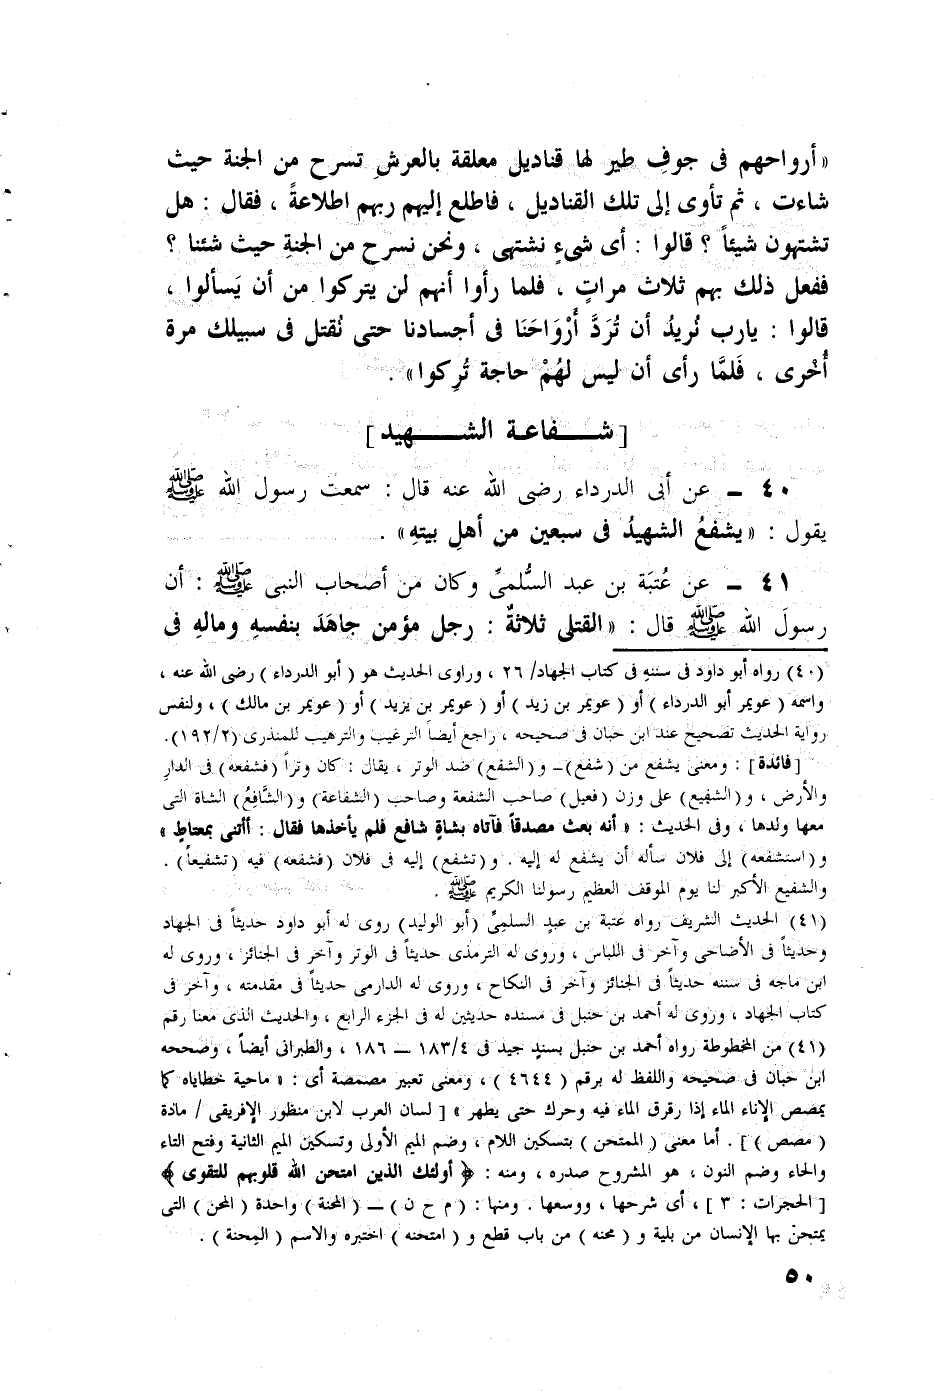 «أرواحهم فى جوفِ طير لها قناديل معلقة بالعرشِ تسرح من الجنة حيث
شاءت ، ثم تأوى إلى تلك القناديل ، فاطلع إليهم ربهم اطلاعةً ، فقال : هل
تشتهون شيئاً ؟ قالوا : أى شىءٍ نشتهى ، ونحن نسرح من الجنةِ حيث شئنا ؟
ففعل ذلك بهم ثلاث مراتٍ ، فلما رأوا أنهم لن يتركوا من أن يَسألوا ،
قالوا : يارب نُريدُ أن تُرَدَّ أَرْوَاحَنَا فى أجسادنا حتى نُقتل فى سبيلك مرة
أُخْرى ، فَلمَّا رأى أن ليس لهُمْ حاجة تُرِكوا» .
[ شفاعة الشهيد ]
٤٠ ــ عن أبى الدرداء رضى الله عنه قال : سمعت رسول الله ﷺ
يقول : «يشفعُ الشهيدُ فى سبعين من أهلِ بيتهِ» .
٤١ ــ عن عُتبَة بن عبد السُّلمىِّ وكان من أصحاب النبى ﷺ : أن
رسولَ الله ﷺ قال : «القتلى ثلاثةٌ : رجل مؤمن جاهَدَ بنفسهِ ومالهِ فى
(٤٠) رواه أبو داود فى سننه فى كتاب الجهاد/ ٢٦ ، وراوى الحديث هو ( أبو الدرداء ) رضى الله عنه ،
واسمه ( عويمر أبو الدرداء ) أو ( عويمر بن زيد ) أو ( عويمر بن يزيد ) أو ( عويمر بن مالك ) ، ولنفس
رواية الحديث تصحيح عند ابن حبان فى صحيحه ، راجع أيضاً الترغيب والترهيب للمنذرى (١٩٢/٢).
[فائدة] : ومعنى يشفع من (شفع)ــ و(الشفع) ضد الوتر ، يقال : كان وتراً (فشفعه) فى الدارِ
والأرض ، و(الشفِيع) على وزن (فعيل) صاحب الشفعة وصاحب (الشفاعة) و(الشَّافِعُ) الشاة التى
معها ولدها ، وفى الحديث : « أنه بعث مصدقاً فآتاه بشاةٍ شافع فلم يأخذها فقال : أأتنى بمعتاطٍ »
و(استشفعه) إلى فلان سأله أن يشفع له إليه . و(تشفع) إليه فى فلان (فشفعه) فيه (تشفيعاً) .
والشفيع الأكبر لنا يوم الموقف العظيم رسولنا الكريم ﷺ .
(٤١) الحديث الشريف رواه عتبة بن عبدٍ السلمِىِّ (أبو الوليد) روى له أبو داود حديثاً فى الجهاد
وحديثاً فى الأضاحى وآخر فى اللباس ، وروى له الترمذى حديثاً فى الوتر وآخر فى الجنائز ، وروى له
ابن ماجه فى سننه حديثاً فى الجنائز وآخر فى النكاح ، وروى له الدارمى حديثاً فى مقدمته ، وآخر فى
كتاب الجهاد ، وروى له أحمد بن حنبل فى مسنده حديثين له فى الجزء الرابع ، والحديث الذى معنا رقم
(٤١) من المخطوطة رواه أحمد بن حنبل بسندٍ جيد فى ١٨٣/٤ ــ ١٨٦ ، والطبرانى أيضاً ، وصححه
ابن حبان فى صحيحه واللفظ له برقم ( ٤٦٤٤ ) ، ومعنى تعبير مصمصة أى : « ماحية خطاياه كما
يمصص الإناء الماء إذا رقرق الماء فيه وحرك حتى يطهر » [ لسان العرب لابن منظور الإفريقى / مادة
( مصص )] . أما معنى ( الممتحن ) بتسكين اللام ، وضم الميم الأولى وتسكين الميم الثانية وفتح التاء
والحاء وضم النون ، هو المشروح صدره ، ومنه : ﴿ أولئك الذين امتحن الله قلوبهم للتقوى ﴾
[ الحجرات : ٣ ] ، أى شرحها ، ووسعها . ومنها : ( م ح ن ) ــ ( المحنة ) واحدة ( المحن ) التى
يمتحن بها الإنسان من بلية و ( محنه ) من باب قطع و ( امتحنه ) اختبره والاسم ( المِحنة ) .
٥٠